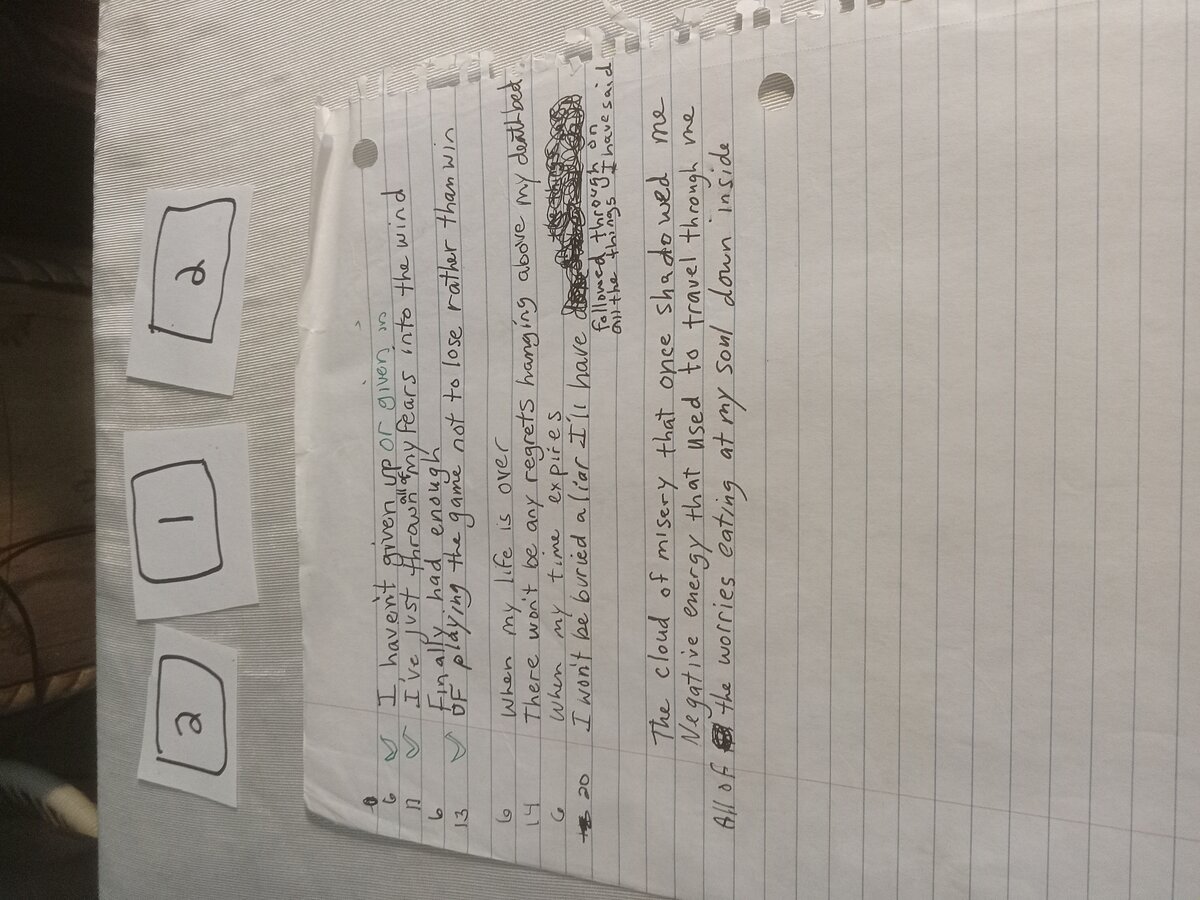 2
1
2
6 I haven't given up or given in
17 I've just thrown all of my fears into the wind
6 Finally had enough
13 OF playing the game not to lose rather than win
6 When my life is over
14 There won't be any regrets hanging above my deathbed
6 When my time expires
20 I won't be buried a liar I'll have
followed through on
all the things I have said
The cloud of misery that once shadowed me
Negative energy that used to travel through me
All of the worries eating at my soul down inside